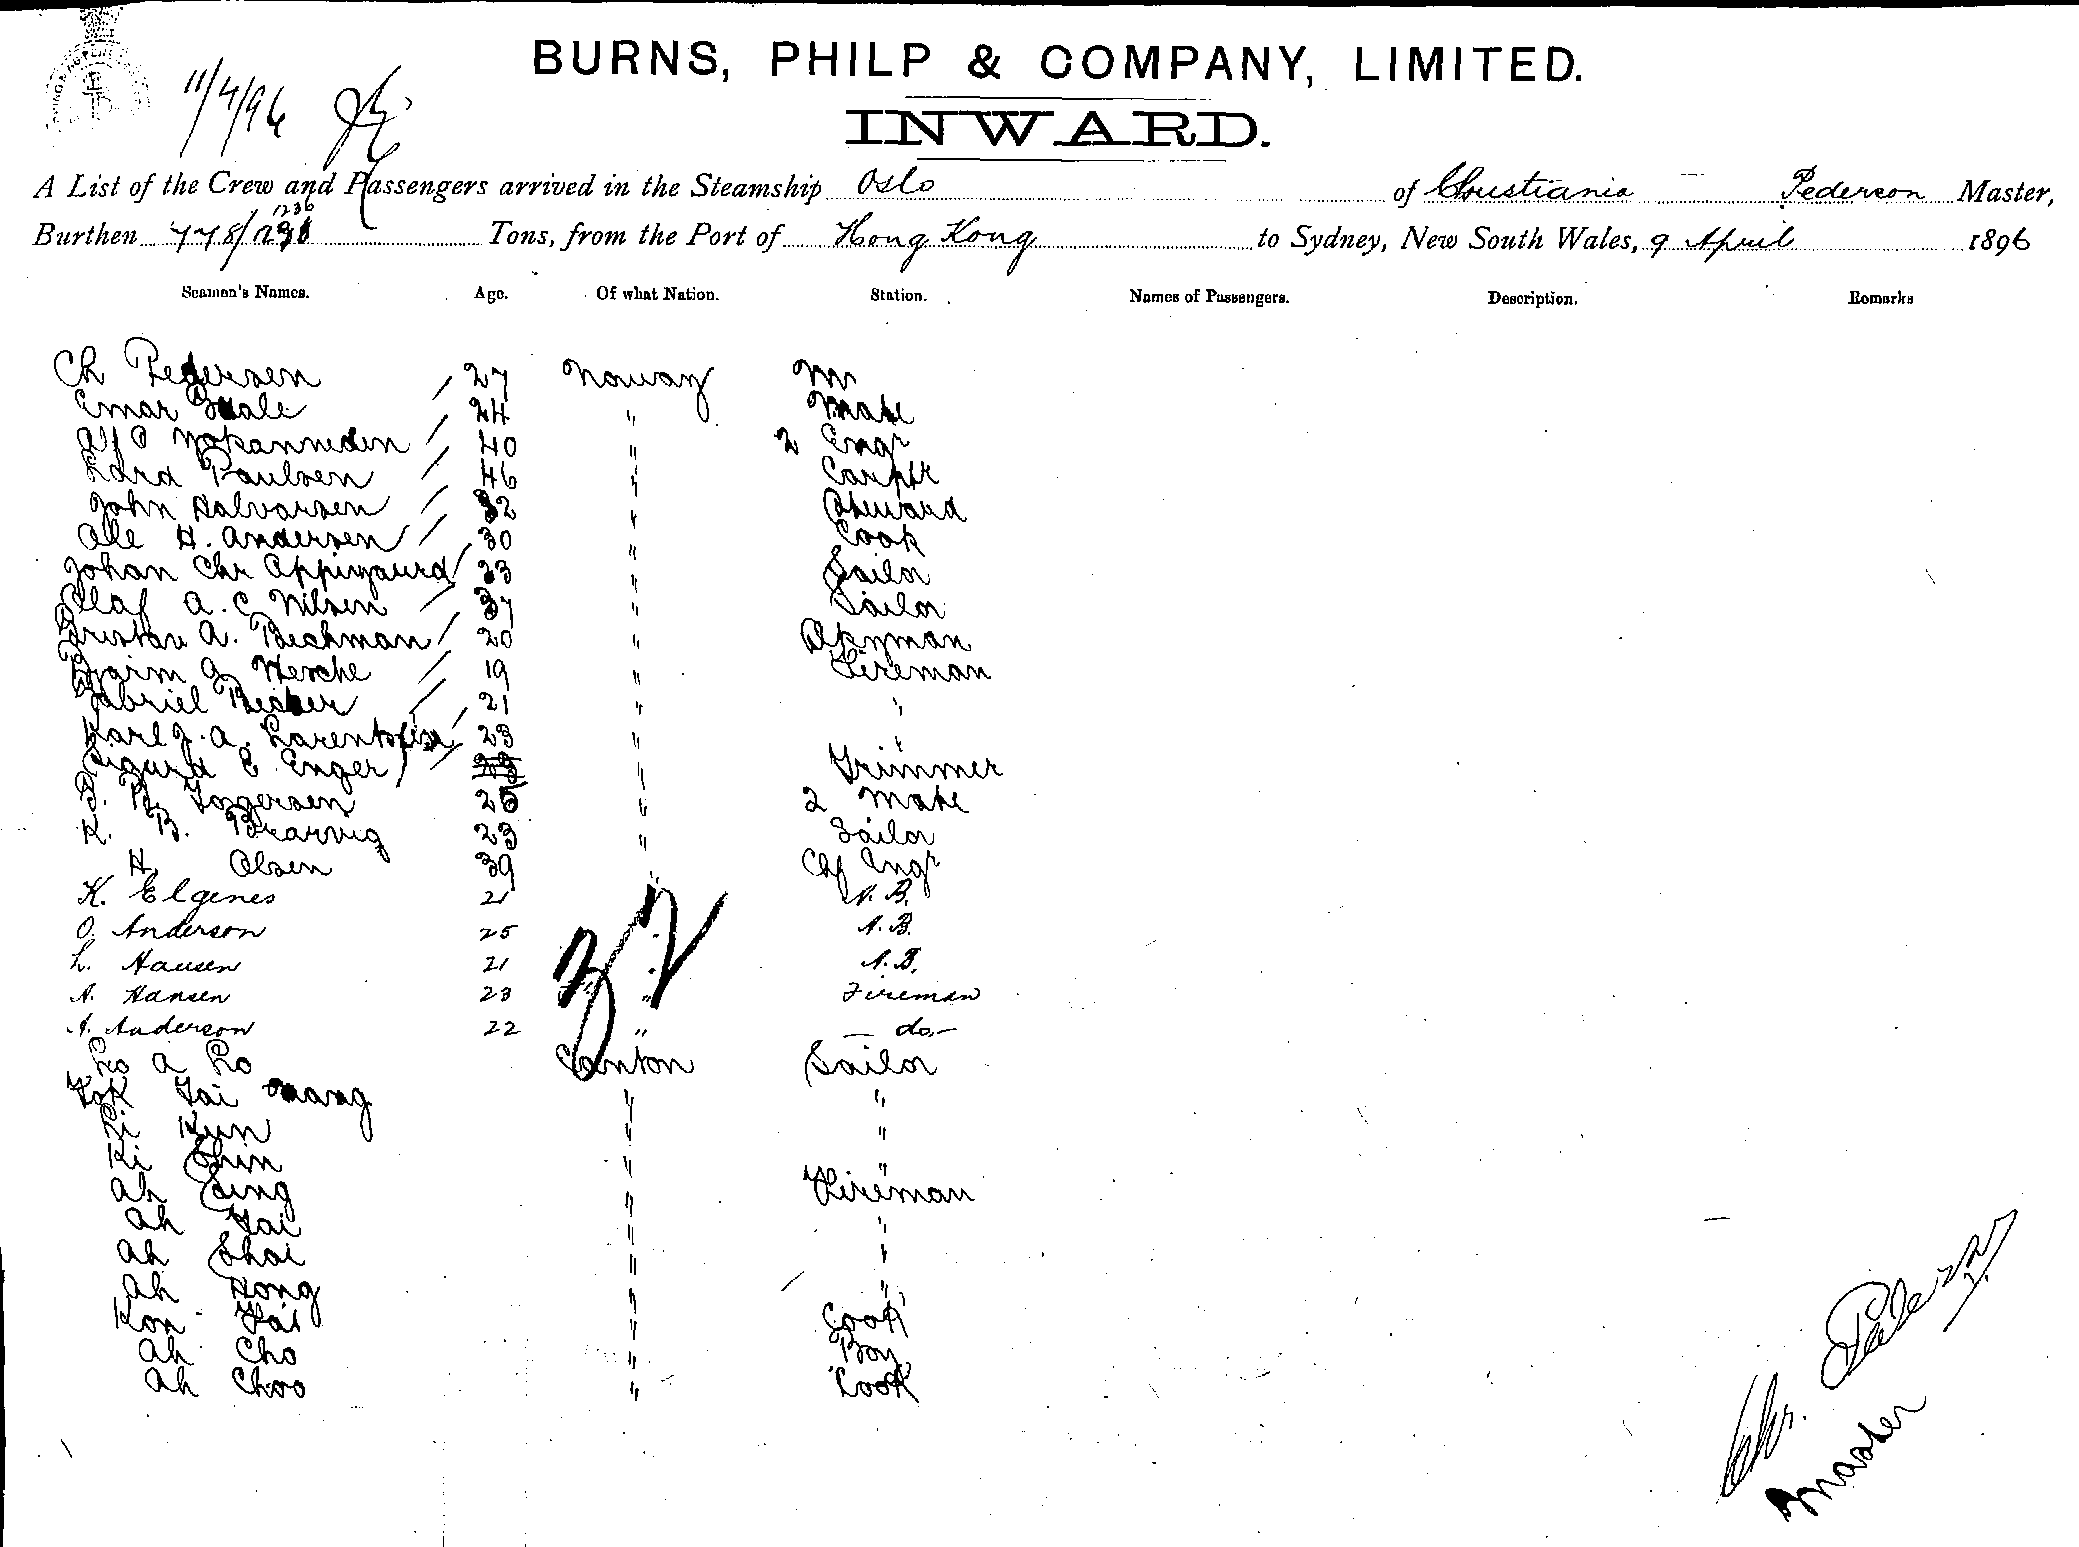 BURNS, PHILP & COMPANY, LIMITED.
11/4/96
INWARD.
A List of the Crew and Passengers arrived in the Steamship Oslo of Christiania Pederson Master,
1236
Burthen 778/ Tons, from the Port of Hong Kong to Sydney, New South Wales, 9 April 1896
Seamen's Names. Age. Of what Nation. Station. Names of Passengers. Description. Remarks
Ch Pedersen / 27 Noway M
Emar / 24 " Mate
/ 40 " 2 Engr
Paulsen / 46 " Carptr
John Halvorsen / 32 " Steward
Ole H. Andersen / 30 " Cook
Johan Chr / 23 " Sailor
Olaf A. C Nilsen / 37 " Sailor
A. Beckman / 20 " Dkyman
/ 19 " Fireman
Gabriel / 21 " "
Karl J. A. / 23 " "
Sigurd E Enger / 23 " Trimmer
B. Torgersen 25 " 2 Mate
K. B. Brarvig 23 " Sailor
H. Olsen 39 " Chf Engr
K. Elgenes 21 A. B.
O. Anderson 25 A. B.
L. Hansen 21 A. B.
A. Hansen 23 " Fireman
A. Anderson 22 " — do —
32
Lo a Lo Canton Sailor
Tok Tai " "
Li Kun " "
Ki Shin " "
Ah Sing " Fireman
Ah Tai " "
Ah Shai " "
Ah Hong " "
Kon Tai " Cook
Ah Cho " Boy
Ah Choo " Cook
Chr. Pedersen
Master